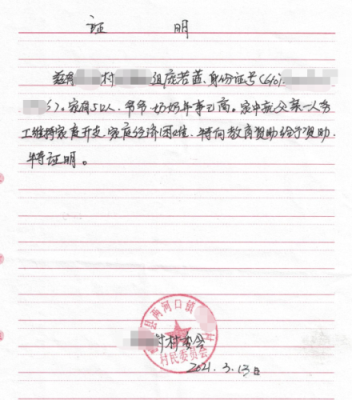 证 明
兹有 村 组店若菡,身份证号(610
6)。家有5口人、爷爷奶奶年事已高。家中靠父亲一人务
工维持家庭开支,家庭经济困难,特向教育资助给予资助,
特证明。
县两河口镇
村民委员会
村村委会
2021.3.13日